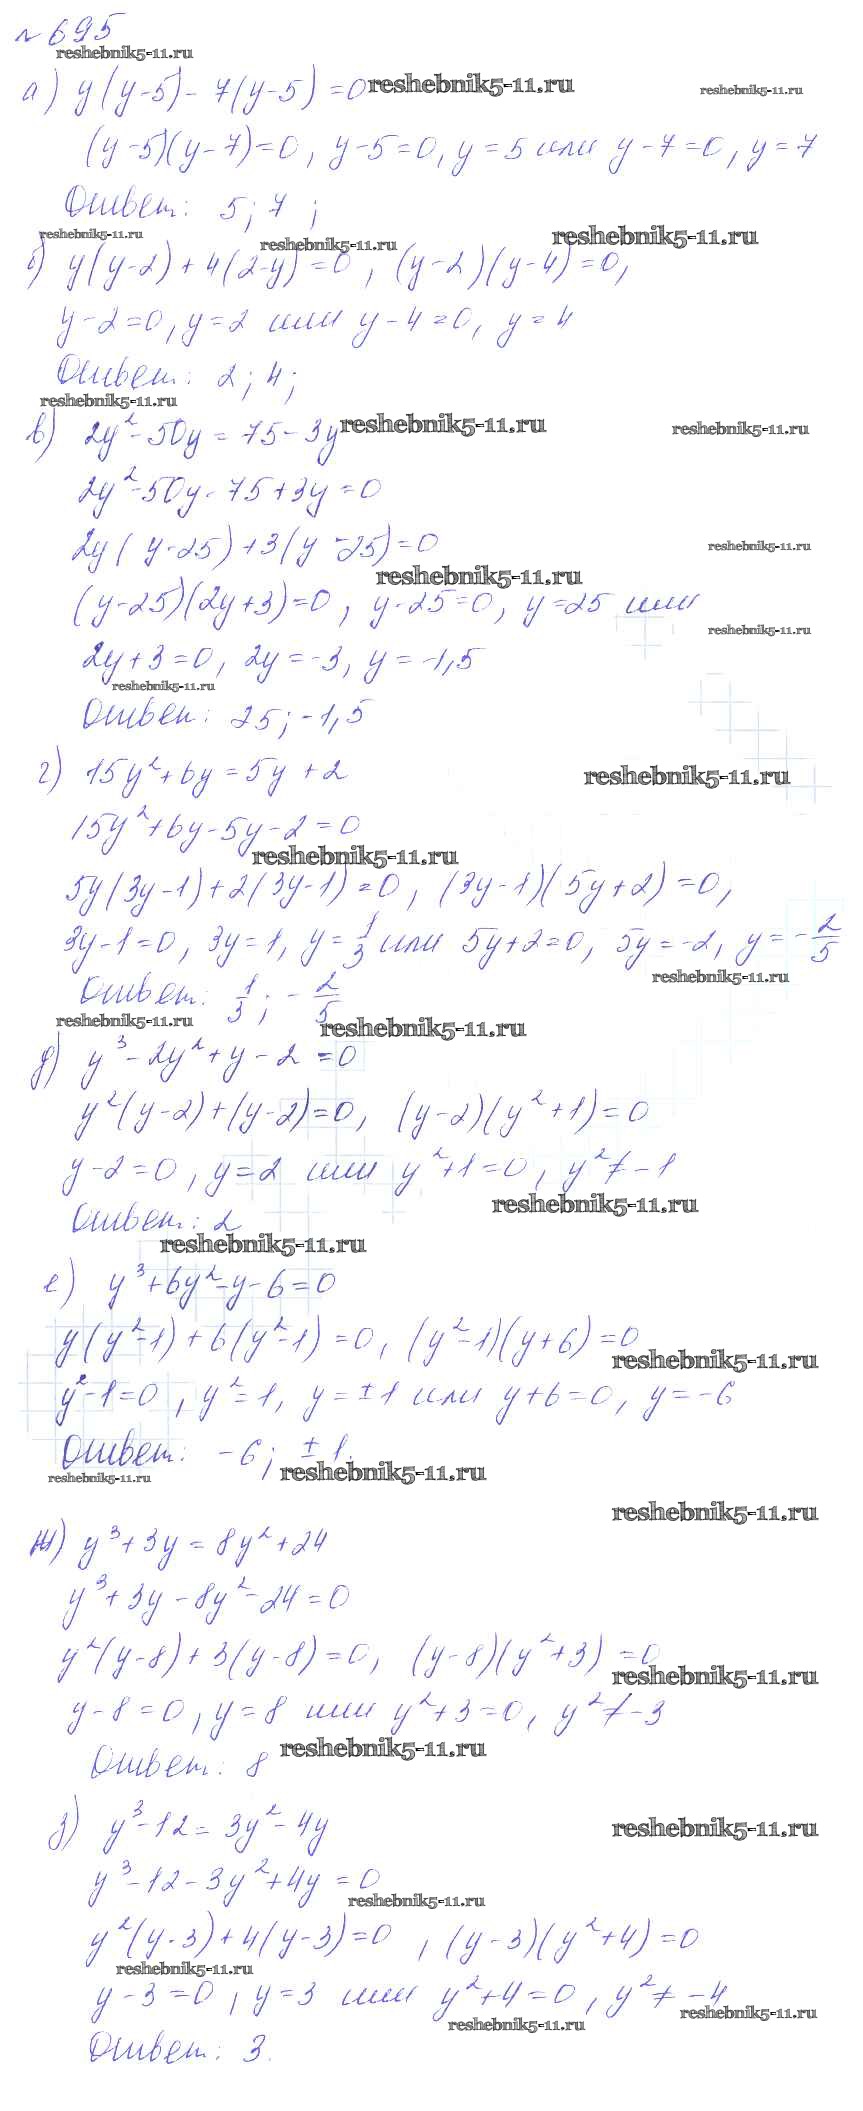 № 695
reshebnik5-11.ru
а) y(y-5) - 7(y-5) = 0 reshebnik5-11.ru reshebnik5-11.ru
(y-5)(y-7)=0, y-5=0, y=5 или y-7=0, y=7
Ответ: 5; 7;
reshebnik5-11.ru reshebnik5-11.ru reshebnik5-11.ru
б) y(y-2) + 4(2-y) = 0, (y-2)(y-4)=0,
y-2=0, y=2 или y-4=0, y=4
Ответ: 2; 4;
reshebnik5-11.ru
в) 2y²-50y = 75-3y reshebnik5-11.ru reshebnik5-11.ru
2y²-50y-75+3y=0
2y(y-25)+3(y-25)=0 reshebnik5-11.ru
reshebnik5-11.ru
(y-25)(2y+3)=0, y-25=0, y=25 или
reshebnik5-11.ru
2y+3=0, 2y=-3, y=-1,5
reshebnik5-11.ru
Ответ: 25; -1,5
г) 15y²+6y=5y+2 reshebnik5-11.ru
15y²+6y-5y-2=0
reshebnik5-11.ru
5y(3y-1)+2(3y-1)=0, (3y-1)(5y+2)=0,
3y-1=0, 3y=1, y=1/3 или 5y+2=0, 5y=-2, y=-2/5
reshebnik5-11.ru
Ответ: 1/3; -2/5
reshebnik5-11.ru reshebnik5-11.ru
д) y³-2y²+y-2=0
y²(y-2)+(y-2)=0, (y-2)(y²+1)=0
y-2=0, y=2 или y²+1=0, y²≠-1
reshebnik5-11.ru
Ответ: 2
reshebnik5-11.ru
е) y³+6y²-y-6=0
y(y²-1)+6(y²-1)=0, (y²-1)(y+6)=0
reshebnik5-11.ru
y²-1=0, y²=1, y=±1 или y+6=0, y=-6
Ответ: -6; ±1.
reshebnik5-11.ru reshebnik5-11.ru
reshebnik5-11.ru
ж) y³+3y=8y²+24
y³+3y-8y²-24=0
y²(y-8)+3(y-8)=0, (y-8)(y²+3)=0
reshebnik5-11.ru
y-8=0, y=8 или y²+3=0, y²≠-3
Ответ: 8 reshebnik5-11.ru
з) y³-12=3y²-4y reshebnik5-11.ru
y³-12-3y²+4y=0
reshebnik5-11.ru
y²(y-3)+4(y-3)=0, (y-3)(y²+4)=0
reshebnik5-11.ru
y-3=0, y=3 или y²+4=0, y²≠-4
reshebnik5-11.ru reshebnik5-11.ru
Ответ: 3.